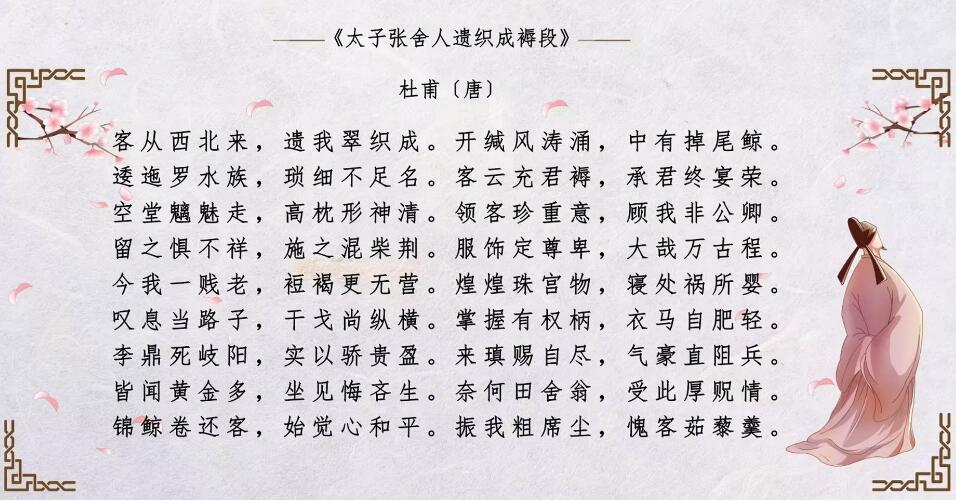 《太子张舍人遗织成褥段》
杜甫〔唐〕
客从西北来，遗我翠织成。开缄风涛涌，中有掉尾鲸。
逶迤罗水族，琐细不足名。客云充君褥，承君终宴荣。
空堂魑魅走，高枕形神清。领客珍重意，顾我非公卿。
留之惧不祥，施之混柴荆。服饰定尊卑，大哉万古程。
今我一贱老，裋褐更无营。煌煌珠宫物，寝处祸所婴。
叹息当路子，干戈尚纵横。掌握有权柄，衣马自肥轻。
李鼎死岐阳，实以骄贵盈。来瑱赐自尽，气豪直阻兵。
皆闻黄金多，坐见悔吝生。奈何田舍翁，受此厚贶情。
锦鲸卷还客，始觉心和平。振我粗席尘，愧客茹藜羹。